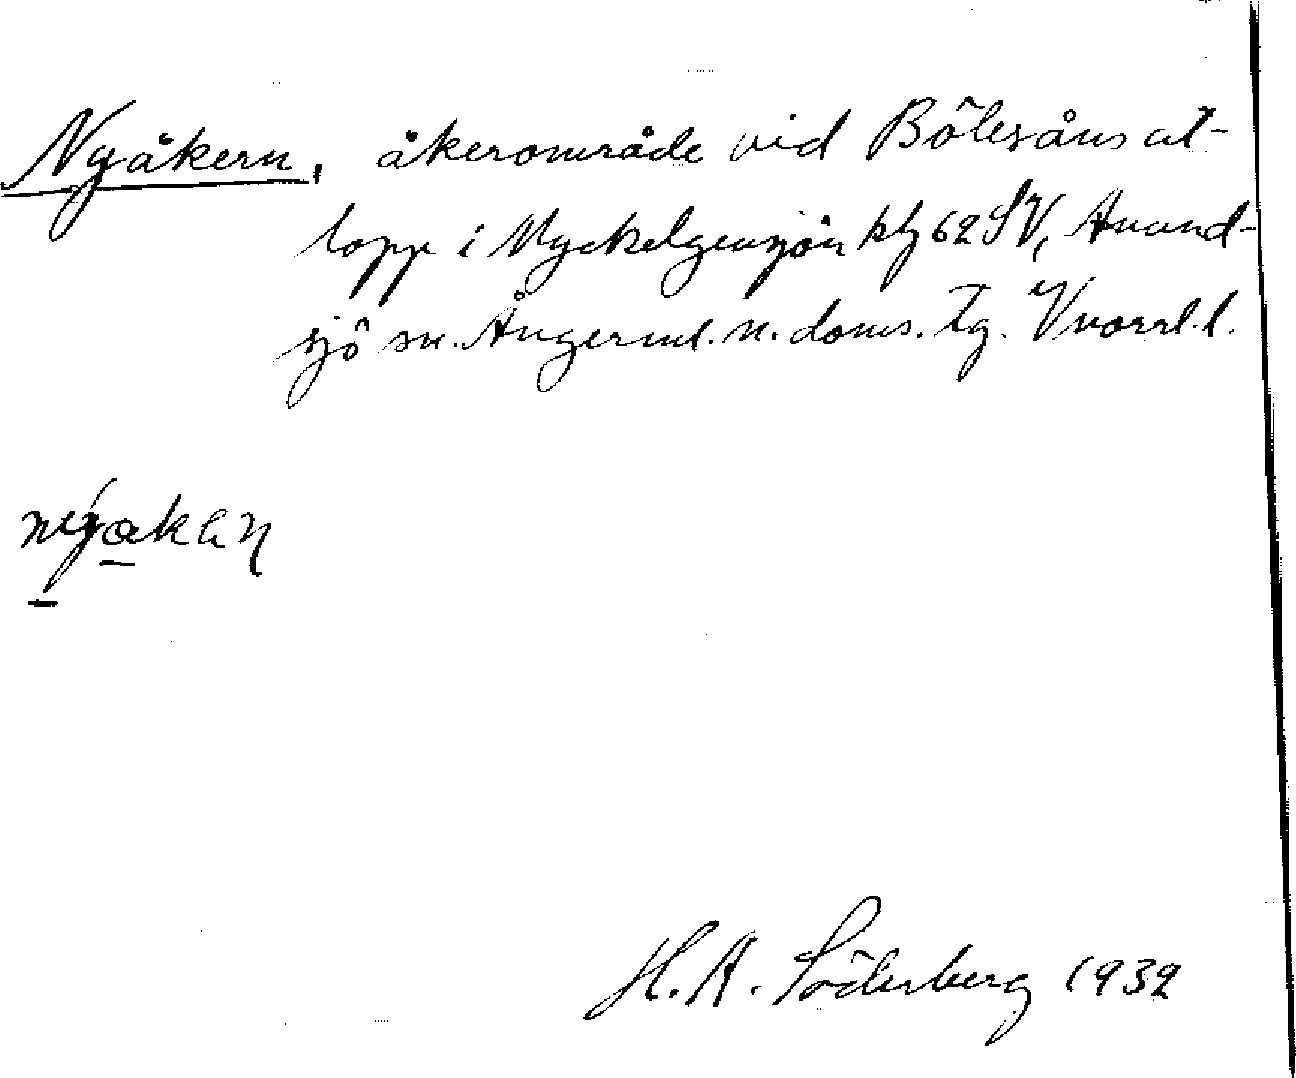 Nyåkern, åkerområde vid Bölesåns ut-
lopp i Myckelgensjön kbl 62 SV, Anund-
sjö sn. Ångerml. n. doms. tg. Vnorrl. l.
nyåkaɳ
H. A. Söderberg 1932